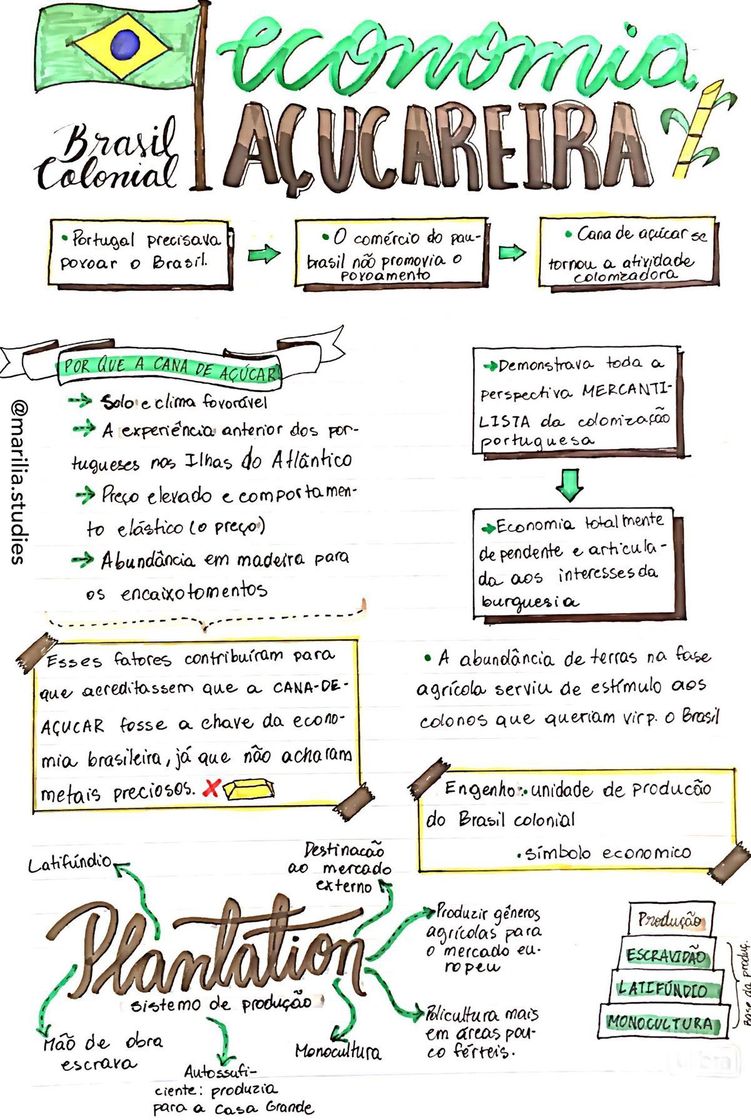 economia
Brasil
Colonial
AÇUCAREIRA
• Portugal precisava
povoar o Brasil.
• O comércio do pau-
brasil não promovia o
povoamento
• Cana de açúcar se
tornou a atividade
colonizadora
POR QUE A CANA DE AÇÚCAR
Solo e clima favorável
A experiência anterior dos por-
tugueses nas Ilhas do Atlântico
Preço elevado e comportamen-
to elástico (o preço)
Abundância em madeira para
os encaixotamentos
@marilia.studies
Esses fatores contribuíram para
que acreditassem que a CANA-DE-
AÇUCAR fosse a chave da econo-
mia brasileira, já que não acharam
metais preciosos.
Demonstrava toda a
perspectiva MERCANTI-
LISTA da colonização
portuguesa
Economia totalmente
dependente e articula-
da aos interesses da
burguesia
• A abundância de terras na fase
agrícola serviu de estímulo aos
colonos que queriam vir p. o Brasil
Engenho: • unidade de produção
do Brasil colonial
• símbolo economico
Latifúndio
Destinação
ao mercado
externo
Plantation
sistema de produção
Produzir gêneros
agrícolas para
o mercado eu-
ropeu
Policultura mais
em áreas pou-
co férteis.
Monocultura
Autossufi-
ciente: produzia
para a Casa Grande
Mão de obra
escrava
Produção
ESCRAVIDÃO
LATIFÚNDIO
MONOCULTURA
Base da produç.